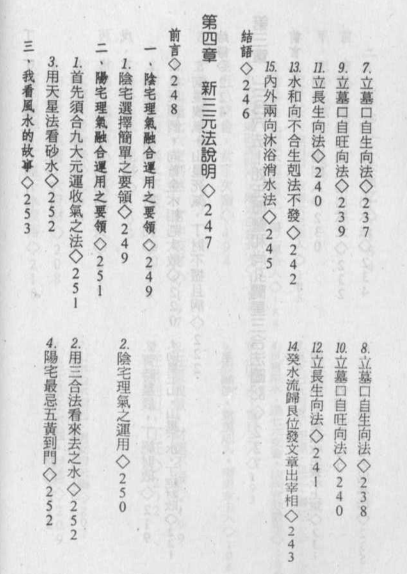 7.立墓口自生向法◇237
8.立墓口自生向法◇238
9.立墓口自旺向法◇239
10.立墓口自旺向法◇240
11.立長生向法◇240
12.立長生向法◇241
13.水和向不合生剋法不發◇242
14.癸水流歸艮位發文章出宰相◇243
15.內外兩向沐浴消水法◇245
結語◇246
第四章 新三元法說明◇247
前言◇248
一、陰宅理氣融合運用之要領◇249
1.陰宅選擇簡單之要領◇249
2.陰宅理氣之運用◇250
二、陽宅理氣融合運用之要領◇251
1.首先須合九大元運收氣之法◇251
2.用三合法看來去之水◇252
3.用天星法看砂水◇252
4.陽宅最忌五黃到門◇252
三、我看風水的故事◇253